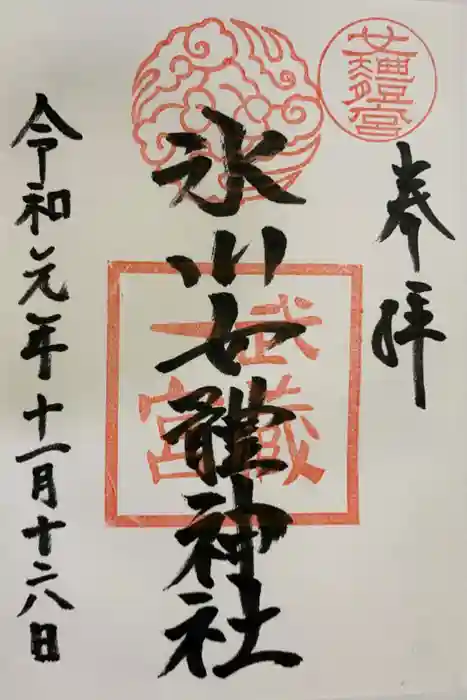 奉拝
女體宮
氷川女體神社
武蔵
一宮
令和元年十一月十六日